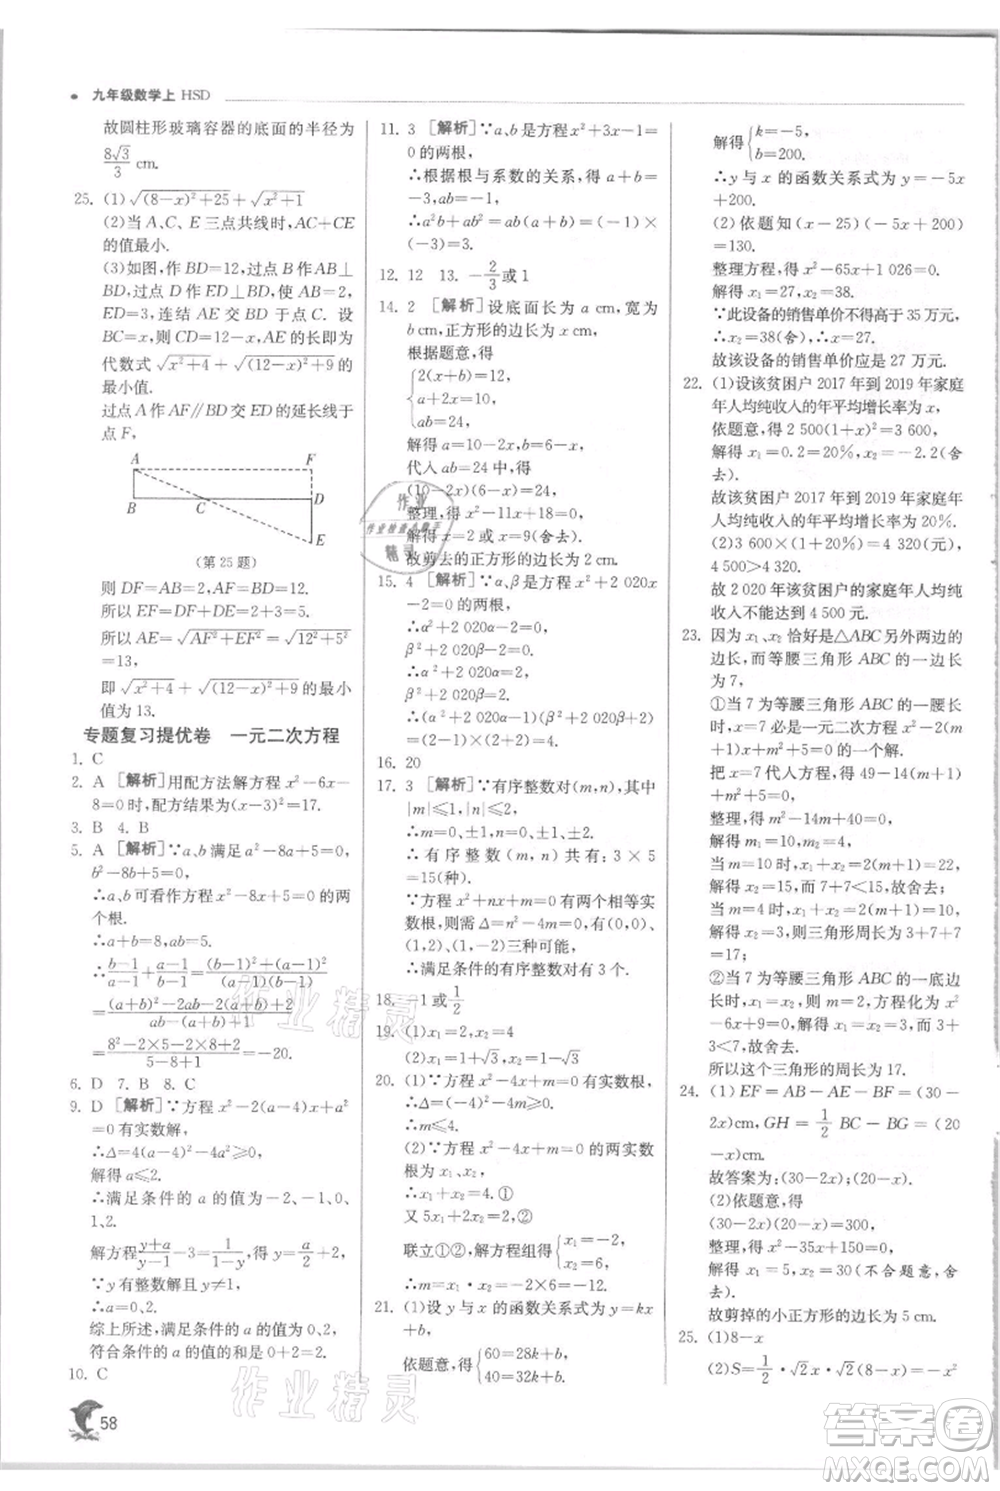 九年级数学上 HSD
故圆柱形玻璃容器的底面的半径为
8√3/3 cm.
25. (1)√((8-x)²+25)+√(x²+1)
(2)当 A、C、E 三点共线时,AC+CE
的值最小.
(3)如图,作 BD=12,过点 B 作 AB⊥
BD,过点 D 作 ED⊥BD,使 AB=2,
ED=3,连结 AE 交 BD 于点 C. 设
BC=x,则 CD=12-x,AE 的长即为
代数式 √(x²+4)+√((12-x)²+9)的
最小值.
过点 A 作 AF∥BD 交 ED 的延长线于
点 F,
A F
B C D
E
(第 25 题)
则 DF=AB=2,AF=BD=12,
所以 EF=DF+DE=2+3=5.
所以 AE=√(AF²+EF²)=√(12²+5²)
=13,
即 √(x²+4)+√((12-x)²+9)的最小
值为 13.
专题复习提优卷 一元二次方程
1. C
2. A [解析]用配方法解方程 x²-6x-
8=0 时,配方结果为(x-3)²=17.
3. B 4. B
5. A [解析]∵a、b 满足 a²-8a+5=0,
b²-8b+5=0,
∴a、b 可看作方程 x²-8x+5=0 的两
个根.
∴a+b=8,ab=5.
∴(b-1)/(a-1)+(a-1)/(b-1)=((b-1)²+(a-1)²)/((a-1)(b-1))=
((a+b)²-2ab-2(a+b)+2)/(ab-(a+b)+1)=
(8²-2×5-2×8+2)/(5-8+1)=-20.
6. D 7. B 8. C
9. D [解析]∵方程 x²-2(a-4)x+a²
=0 有实数解,
∴Δ=4(a-4)²-4a²≥0,
解得 a≤2.
∴满足条件的 a 的值为-2、-1、0、
1、2.
解方程(y+a)/(y-1)-3=1/(1-y),得 y=a/2+2.
∵y 有整数解且 y≠1,
∴a=0、2.
综上所述,满足条件的 a 的值为 0、2,
符合条件的 a 的值的和是 0+2=2.
10. C
58
11. 3 [解析]∵a、b 是方程 x²+x-1=
0 的两根,
∴根据根与系数的关系,得 a+b=
-1,ab=-1.
∴a²b+ab²=ab(a+b)=(-1)×
(-3)=3.
12. 12 13. -2/3或 1
14. 2 [解析]设底面长为 a cm,宽为
b cm,正方形的边长为 x cm.
根据题意,得
{2(x+b)=12,
a+2x=10,
ab=24,
解得 a=10-2x,b=6-x,
代入 ab=24 中,得
(10-2x)(6-x)=24,
整理,得 x²-11x+18=0,
解得 x=2 或 x=9(舍去).
故剪去的正方形的边长为 2 cm.
15. 4 [解析]∵α、β是方程 x²+2 020x
-2=0 的两根,
∴α²+2 020α-2=0,
β²+2 020β-2=0.
∴α²+2 020α=2,
β²+2 020β=2.
∴(α²+2 020α-1)(β²+2 020β+2)
=(2-1)×(2+2)=4.
16. 20
17. 3 [解析]∵有序整数对(m,n),其中
|m|≤1,|n|≤2,
∴m=0、±1,n=0、±1、±2.
∴有序整数(m,n)共有:3×5
=15(种).
∵方程 x²+nx+m=0 有两个相等实
数根,则需 Δ=n²-4m=0,有(0,0)、
(1,2)、(1,-2)三种可能,
∴满足条件的有序整数对有 3 个.
18. -1 或1/2
19. (1)x₁=2,x₂=4
(2)x₁=1+√3,x₂=1-√3
20. (1)∵方程 x²-4x+m=0 有实数根,
∴Δ=(-4)²-4m≥0,
∴m≤4.
(2)∵方程 x²-4x+m=0 的两实数
根为 x₁、x₂,
∴x₁+x₂=4. ①
又 5x₁+2x₂=2, ②
联立①②,解方程组得{x₁=-2,
x₂=6.
∴m=x₁·x₂=-2×6=-12.
21. (1)设 y 与 x 的函数关系式为 y=kx
+b,
依题意,得{60=28k+b,
40=32k+b,
解得{k=-5,
b=200.
∴y 与 x 的函数关系式为 y=-5x
+200.
(2)依题知(x-25)(-5x+200)
=130.
整理方程,得 x²-65x+1 026=0.
解得 x₁=27,x₂=38.
∵此设备的销售单价不得高于 35 万元,
∴x₂=38(舍去),∴x=27.
故该设备的销售单价应是 27 万元.
22. (1)设该贫困户 2017 年到 2019 年家庭
年人均纯收入的年平均增长率为 x,
依题意,得 2 500(1+x)²=3 600,
解得 x₁=0.2=20%,x₂=-2.2(舍
去).
故该贫困户 2017 年到 2019 年家庭年
人均纯收入的年平均增长率为 20%.
(2)3 600×(1+20%)=4 320(元),
4 500>4 320.
故 2 020 年该贫困户的家庭年人均纯
收入不能达到 4 500 元.
23. 因为 x₁、x₂ 恰好是△ABC 另外两边的
边长,而等腰三角形 ABC 的一边长
为 7,
①当 7 为等腰三角形 ABC 的一腰长
时,x=7 必是一元二次方程 x²-2(m
+1)x+m²+5=0 的一个解.
把 x=7 代入方程,得 49-14(m+
1)+m²+5=0,
整理,得 m²-14m+40=0,
解得 m₁=10,m₂=4.
当 m=10 时,x₁+x₂=2(m+1)=22,
解得 x₂=15,而 7+7<15,故舍去;
当 m=4 时,x₁+x₂=2(m+1)=10,
解得 x₂=3,则三角形周长为 3+7+7
=17;
②当 7 为等腰三角形 ABC 的一底边
长时,x₁=x₂,则 m=2,方程化为 x²-
6x+9=0,解得 x₁=x₂=3,则 3+3<7,
故舍去.
所以这个三角形的周长为 17.
24. (1) EF=AB-AE-BF=(30-
2x)cm,GH=1/2 BC-BG=(20
-x)cm.
故答案为:(30-2x)、(20-x).
(2)依题意,得
(30-2x)(20-x)=300,
整理,得 x²-35x+150=0,
解得 x₁=5,x₂=30(不合题意,舍
去).
故剪掉的小正方形的边长为 5 cm.
25. (1)8-x
(2)S=1/2·√2x·√2(8-x)=-x²
作业
作业检查小助手
精灵
作业精灵
作业精灵
答案卷
MXQE.COM